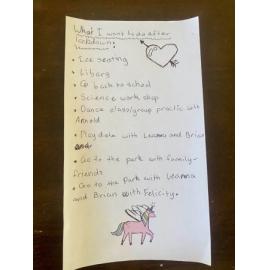 What I want to do after
lockdown:
• Ice seating
• Libary
• Go back to school
• Science work shop
• Dance class/group practic with
Arnold
• Play date with Leanna and Brian
and
• Go to the park with family-
friends
• Go to the Park with Leanna
and Brian with Felicity.